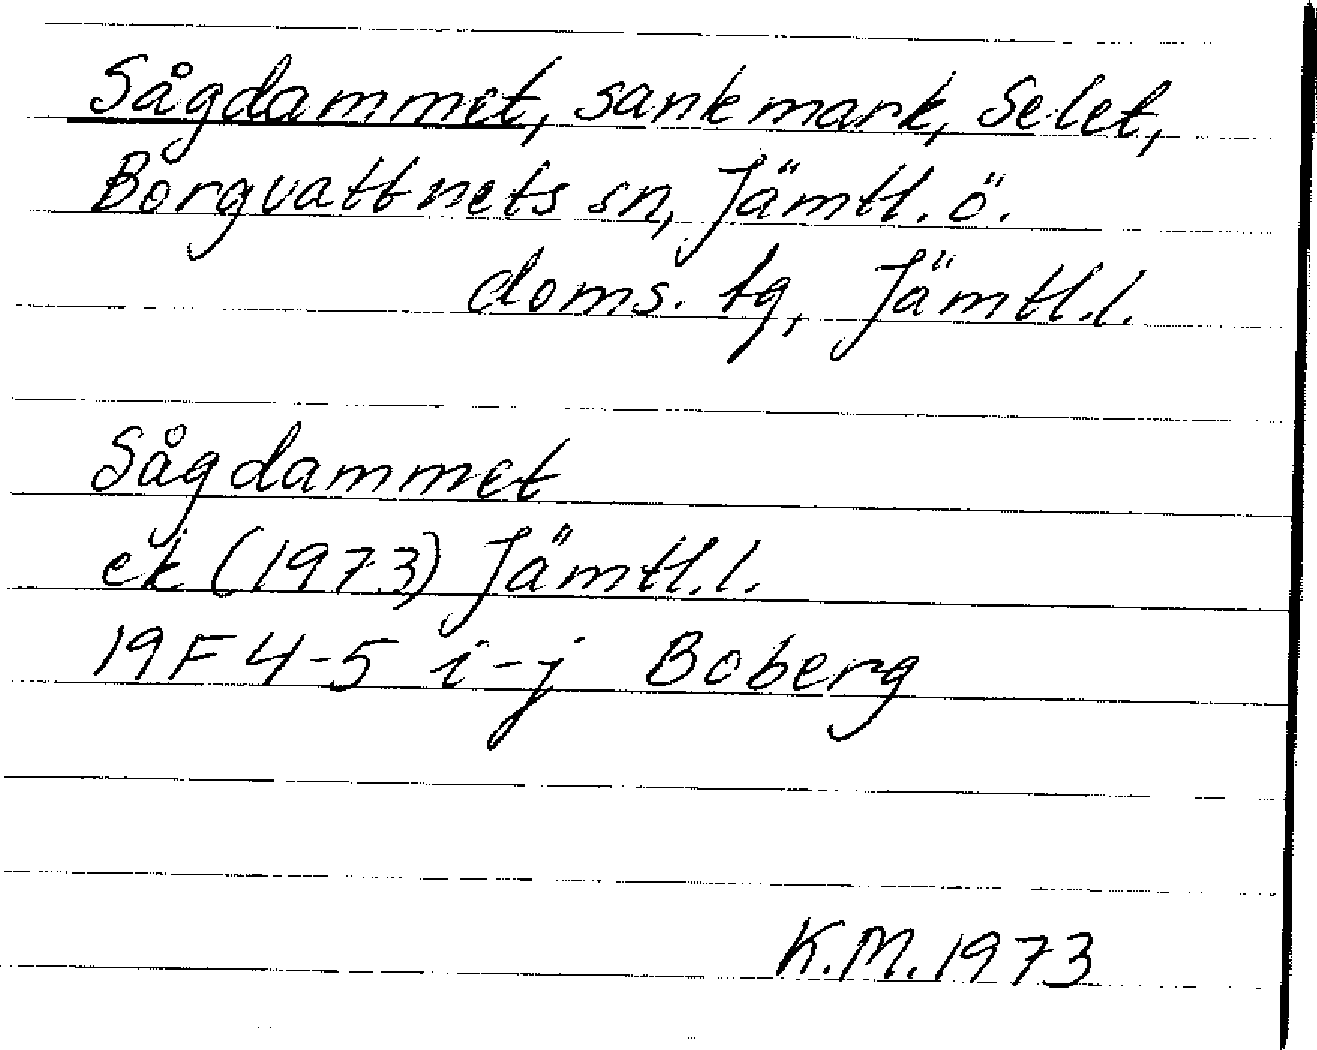 Sågdammet, sankmark, Selet,
Borgvattnets sn, Jämtl. ö.
doms. tg, Jämtl. l.
Sågdammet
ek (1973) Jämtl. l.
19F 4-5 i-j Boberg
K.M. 1973